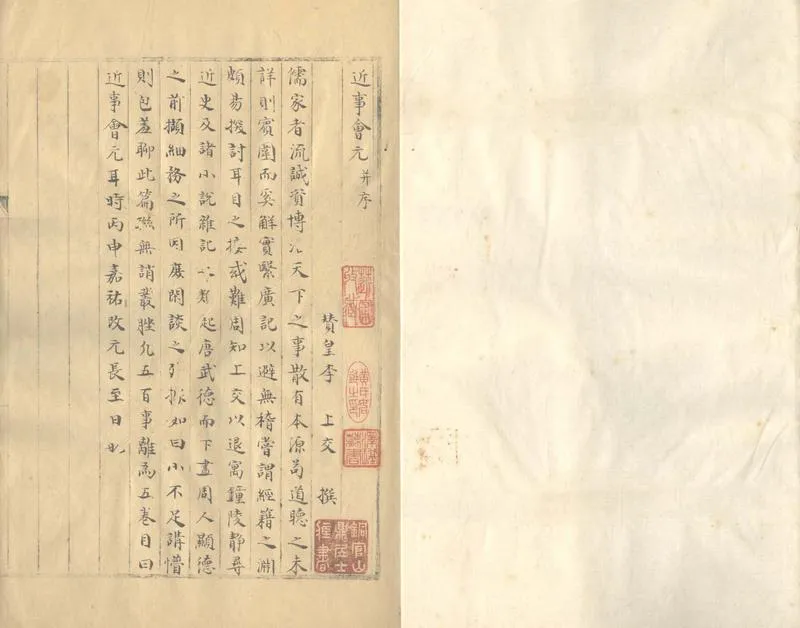 近事會元 并序
贊皇李 上交 撰
儒家者流誠資博洽天下之事散有本源苟道聽之未
詳則賓圍而奚解實繫廣記以避無稽嘗謂經籍之淵
頗易撥討耳目之接或難周知上交以退寓鐘陵靜尋
近史及諸小說雜記之類起唐武德而下盡周人顯德
之前擷細務之所因庶閑談之引據如曰小不足講懵
則包羞聊此篇聯無誚叢脞凢五百事離爲五卷目曰
近事會元耳時丙申嘉祐改元長至日也